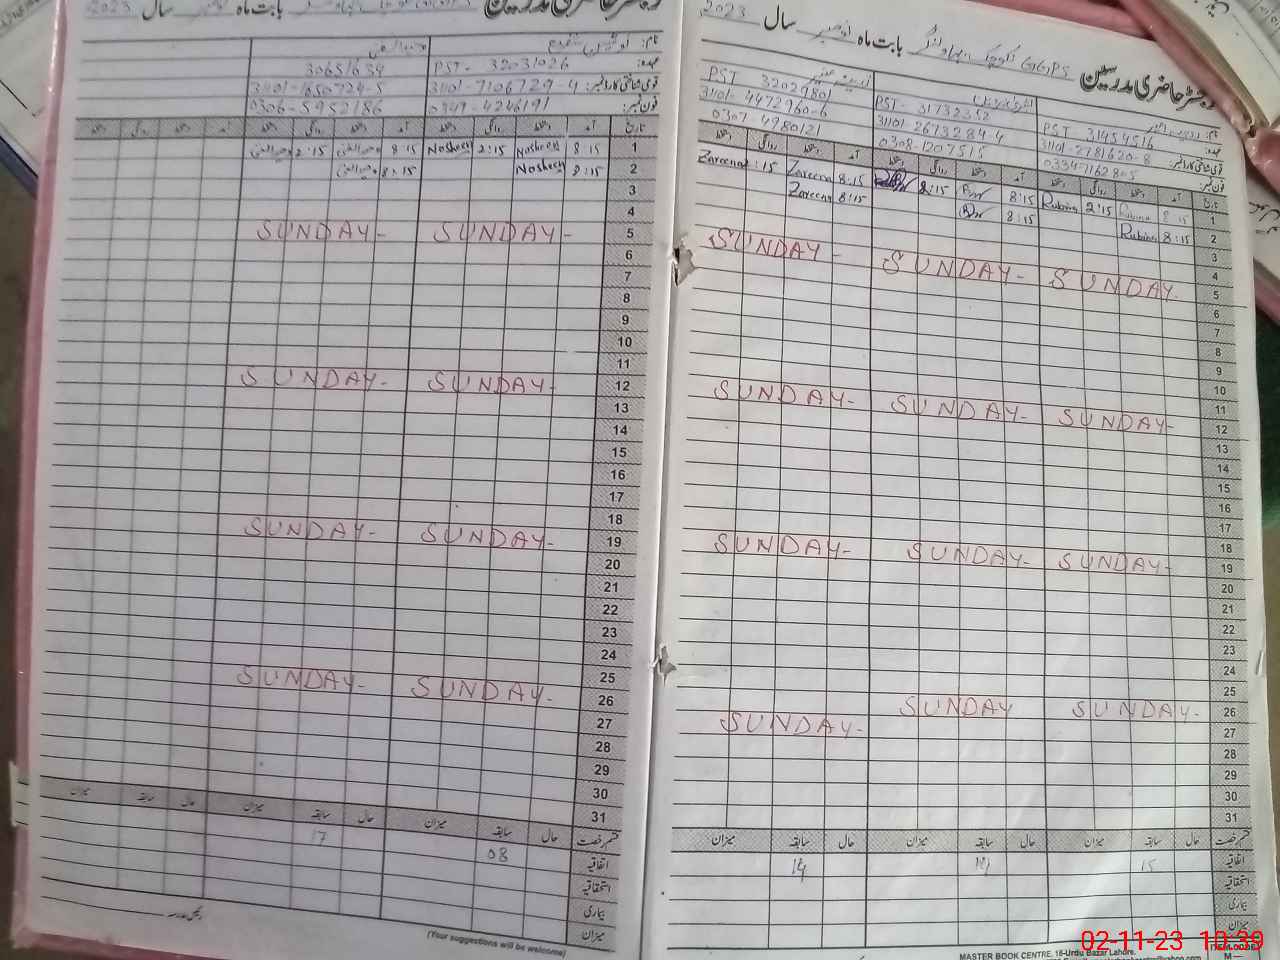 رجسٹر حاضری مدرسین
بابت ماہ نومبر سال 2023
نام:
عہدہ: PST - 32031026 30651634
قومی شناختی کارڈ نمبر: 31101-7106729-4 31101-1650724-5
فون نمبر: 0349-4246191 0306-5952186
تاریخ آمد دستخط روانگی دستخط آمد دستخط روانگی دستخط آمد دستخط روانگی دستخط
1 8:15 Nosheen 2:15 Nosheen 8:15 2:15
2 8:15 Nosheen 8:15
3
4
5 SUNDAY- SUNDAY-
6
7
8
9
10
11
12 SUNDAY- SUNDAY-
13
14
15
16
17
18
19 SUNDAY- SUNDAY-
20
21
22
23
24
25
26 SUNDAY- SUNDAY-
27
28
29
30
31
قسم رخصت حال سابقہ میزان حال سابقہ میزان حال سابقہ میزان
اتفاقیہ 08 17
استحقاقیہ
بیماری
میزان
رئیس مدرسہ
(Your suggestions will be welcome)
رجسٹر حاضری مدرسین
GGPS بابت ماہ نومبر سال 2023
نام:
عہدہ: PST 31454516 PST- 31732352 PST 32029801
قومی شناختی کارڈ نمبر: 31101-2781620-8 31101-2673284-4 31101-4472960-6
فون نمبر: 0334-7162805 0308-1207515 0307 4980121
تاریخ آمد دستخط روانگی دستخط آمد دستخط روانگی دستخط آمد دستخط روانگی دستخط
1 8:15 Rubina 2:15 Rubina 8:15 2:15 8:15 Zareena 2:15 Zareena
2 8:15 Rubina 8:15 8:15 Zareena
3
4
5 SUNDAY SUNDAY- SUNDAY-
6
7
8
9
10
11
12 SUNDAY- SUNDAY- SUNDAY-
13
14
15
16
17
18
19 SUNDAY- SUNDAY- SUNDAY-
20
21
22
23
24
25
26 SUNDAY- SUNDAY SUNDAY-
27
28
29
30
31
قسم رخصت حال سابقہ میزان حال سابقہ میزان حال سابقہ میزان
اتفاقیہ 15 14
استحقاقیہ
بیماری
میزان
MASTER BOOK CENTRE, 18-Urdu Bazar Lahore.
02-11-23 10:39